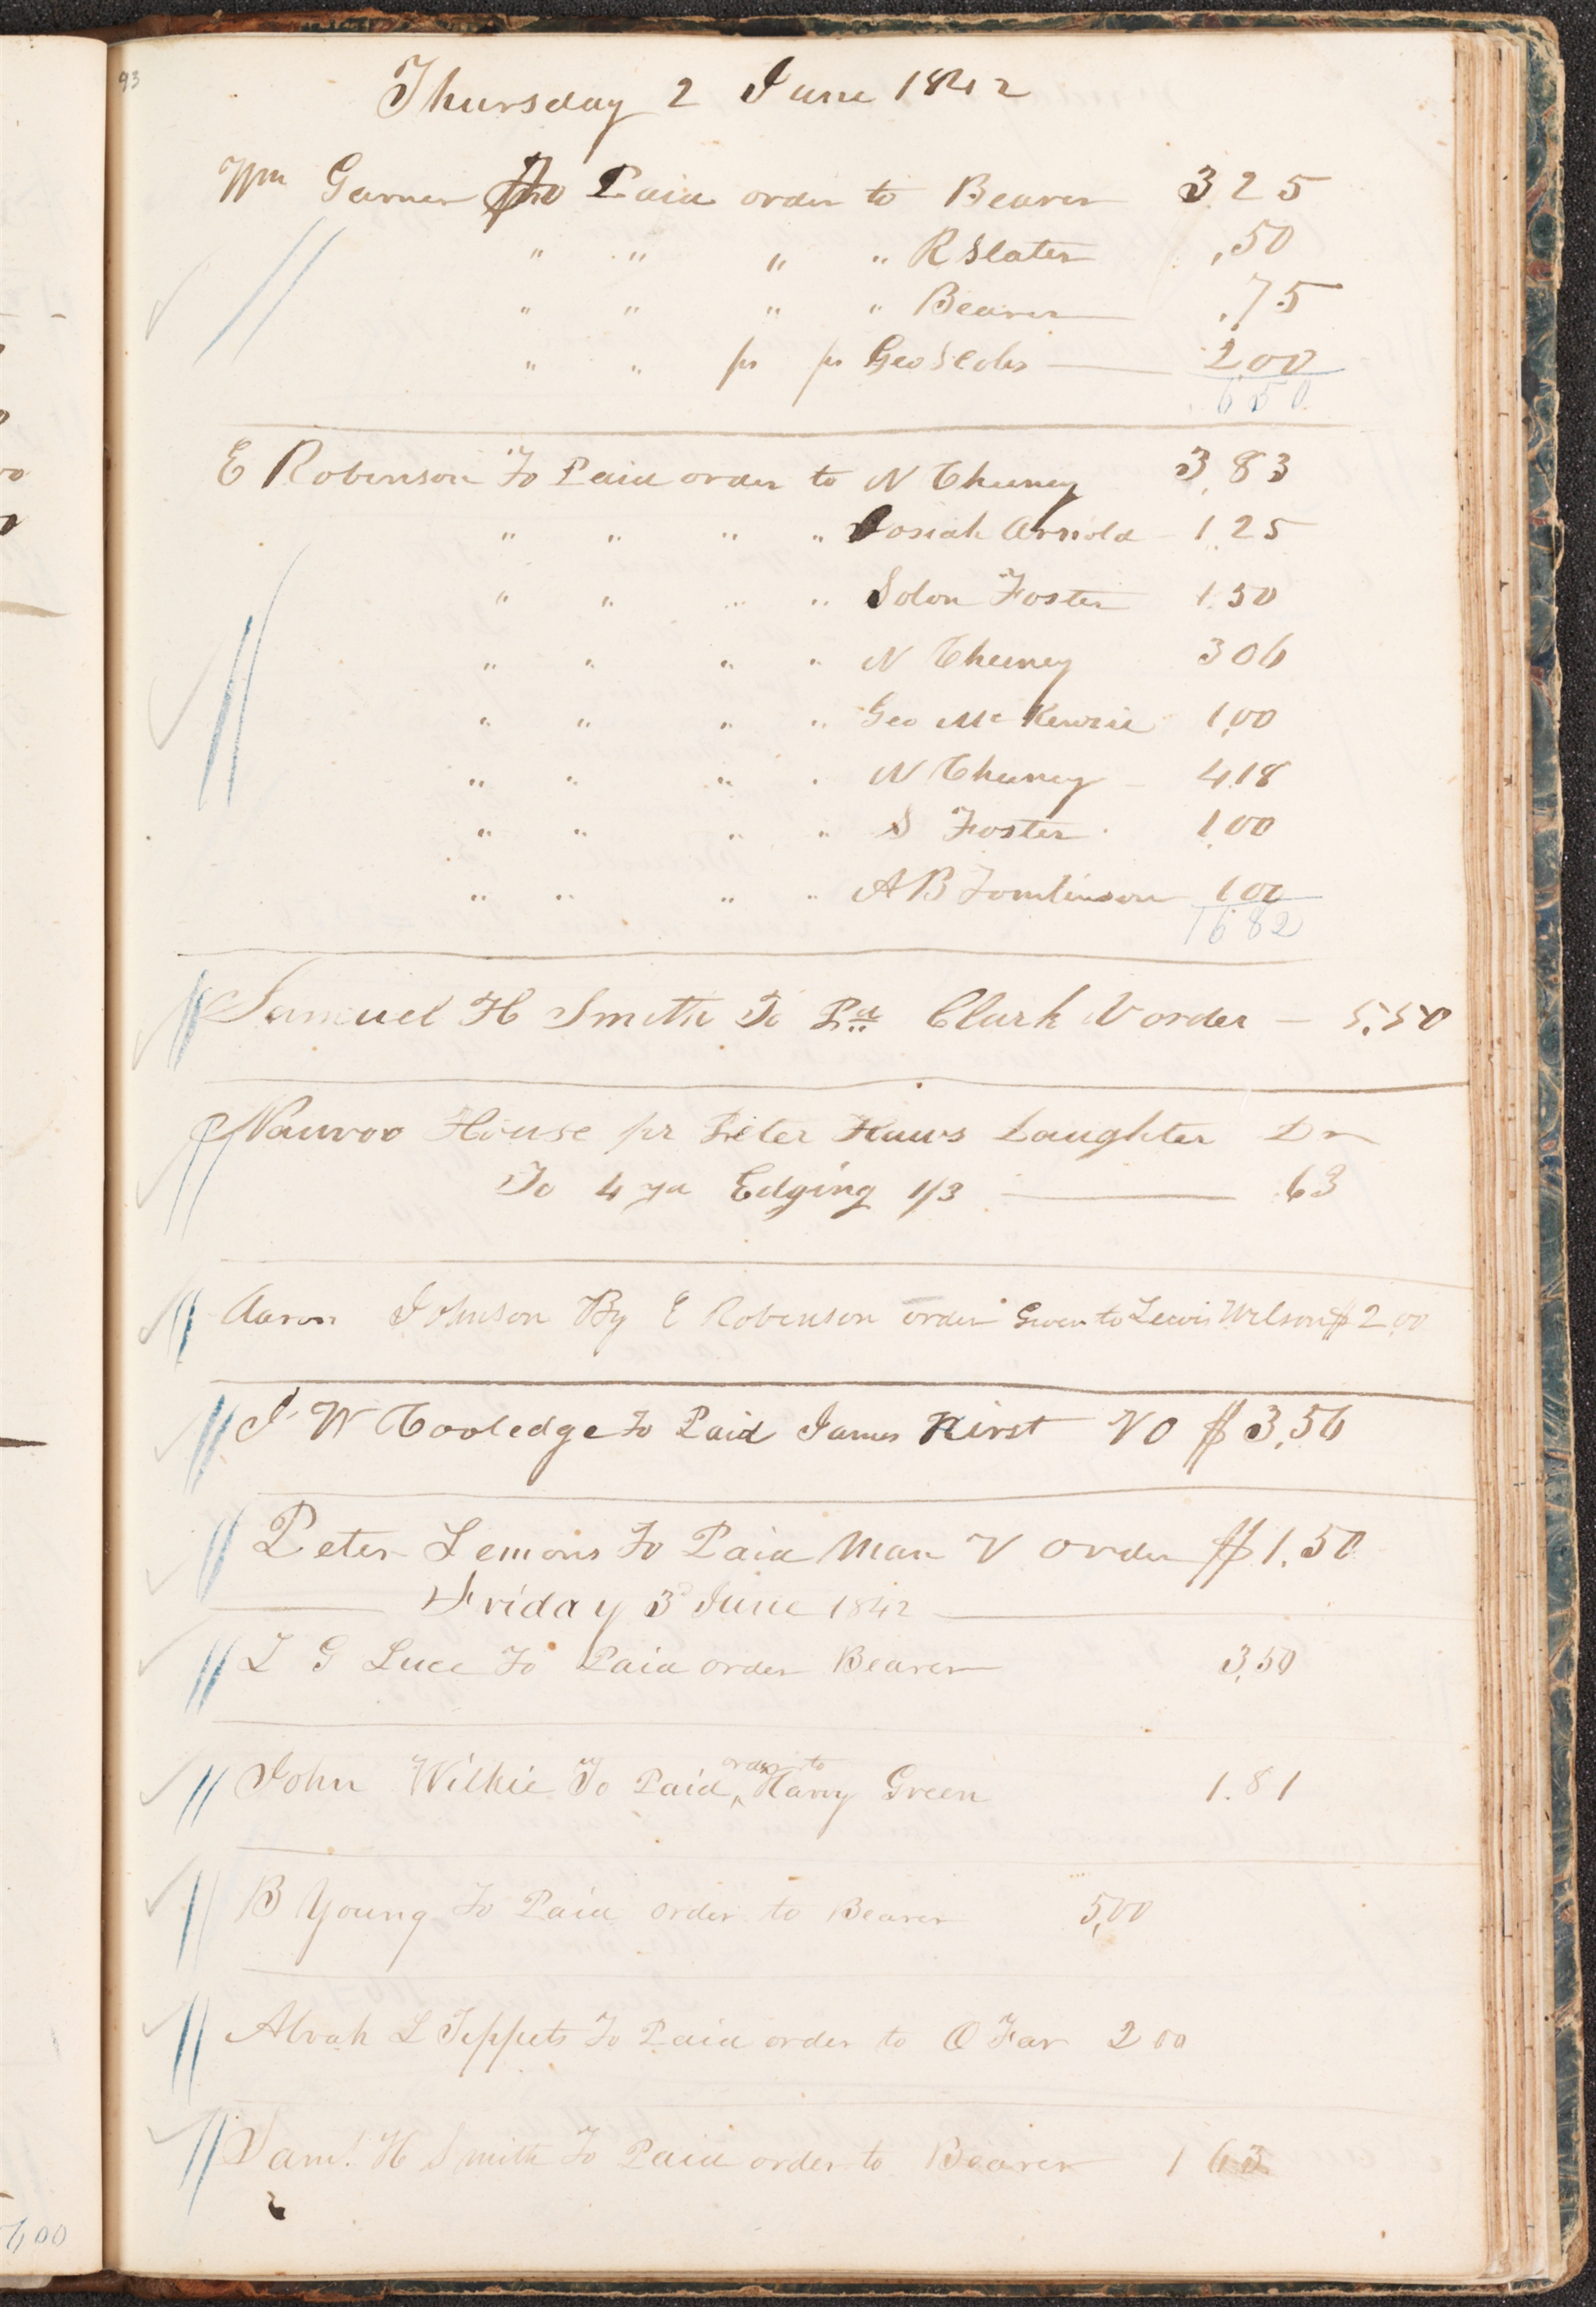 93
Thursday 2 June 1842
Wm Garner To Paid order to Bearer 3.25
" " " " R Slater .50
" " " " Bearer .75
" " pr pr Geo 2.00
6 50
E Robinson To Paid order to N Cheney 3.83
" " " " Josiah Arnold 1.25
" " " " Solon Foster 1.50
" " " " N Cheney 3 06
" " " " Geo Mc Kenzie 1,00
" " " " N Cheney 4.18
" " " " S Foster 1.00
" " " " A B Tomlinson 1 00
16 82
Samuel H Smith To Pd Clark V order — 5.50
Nauvoo House pr Peter Haws Daughter Dr
To 4 yd Edging 1/3 63
Aaron Johnson By E Robinson order Given to Lewis Wilson $2.00
J W Cooledge To Paid James Hirst VO $3.56
Peter Lemons To Paid Man V order $1.50
Friday 3 June 1842
L G Luce To Paid order Bearer 3.50
John Wilkie To Paid ^order to Harvy Green 1.81
B Young To Paid order to Bearer 5,00
Alvah L Tippets To Paid order to O Far 2 00
Saml. H Smith To Paid order to Bearer 1 63
600